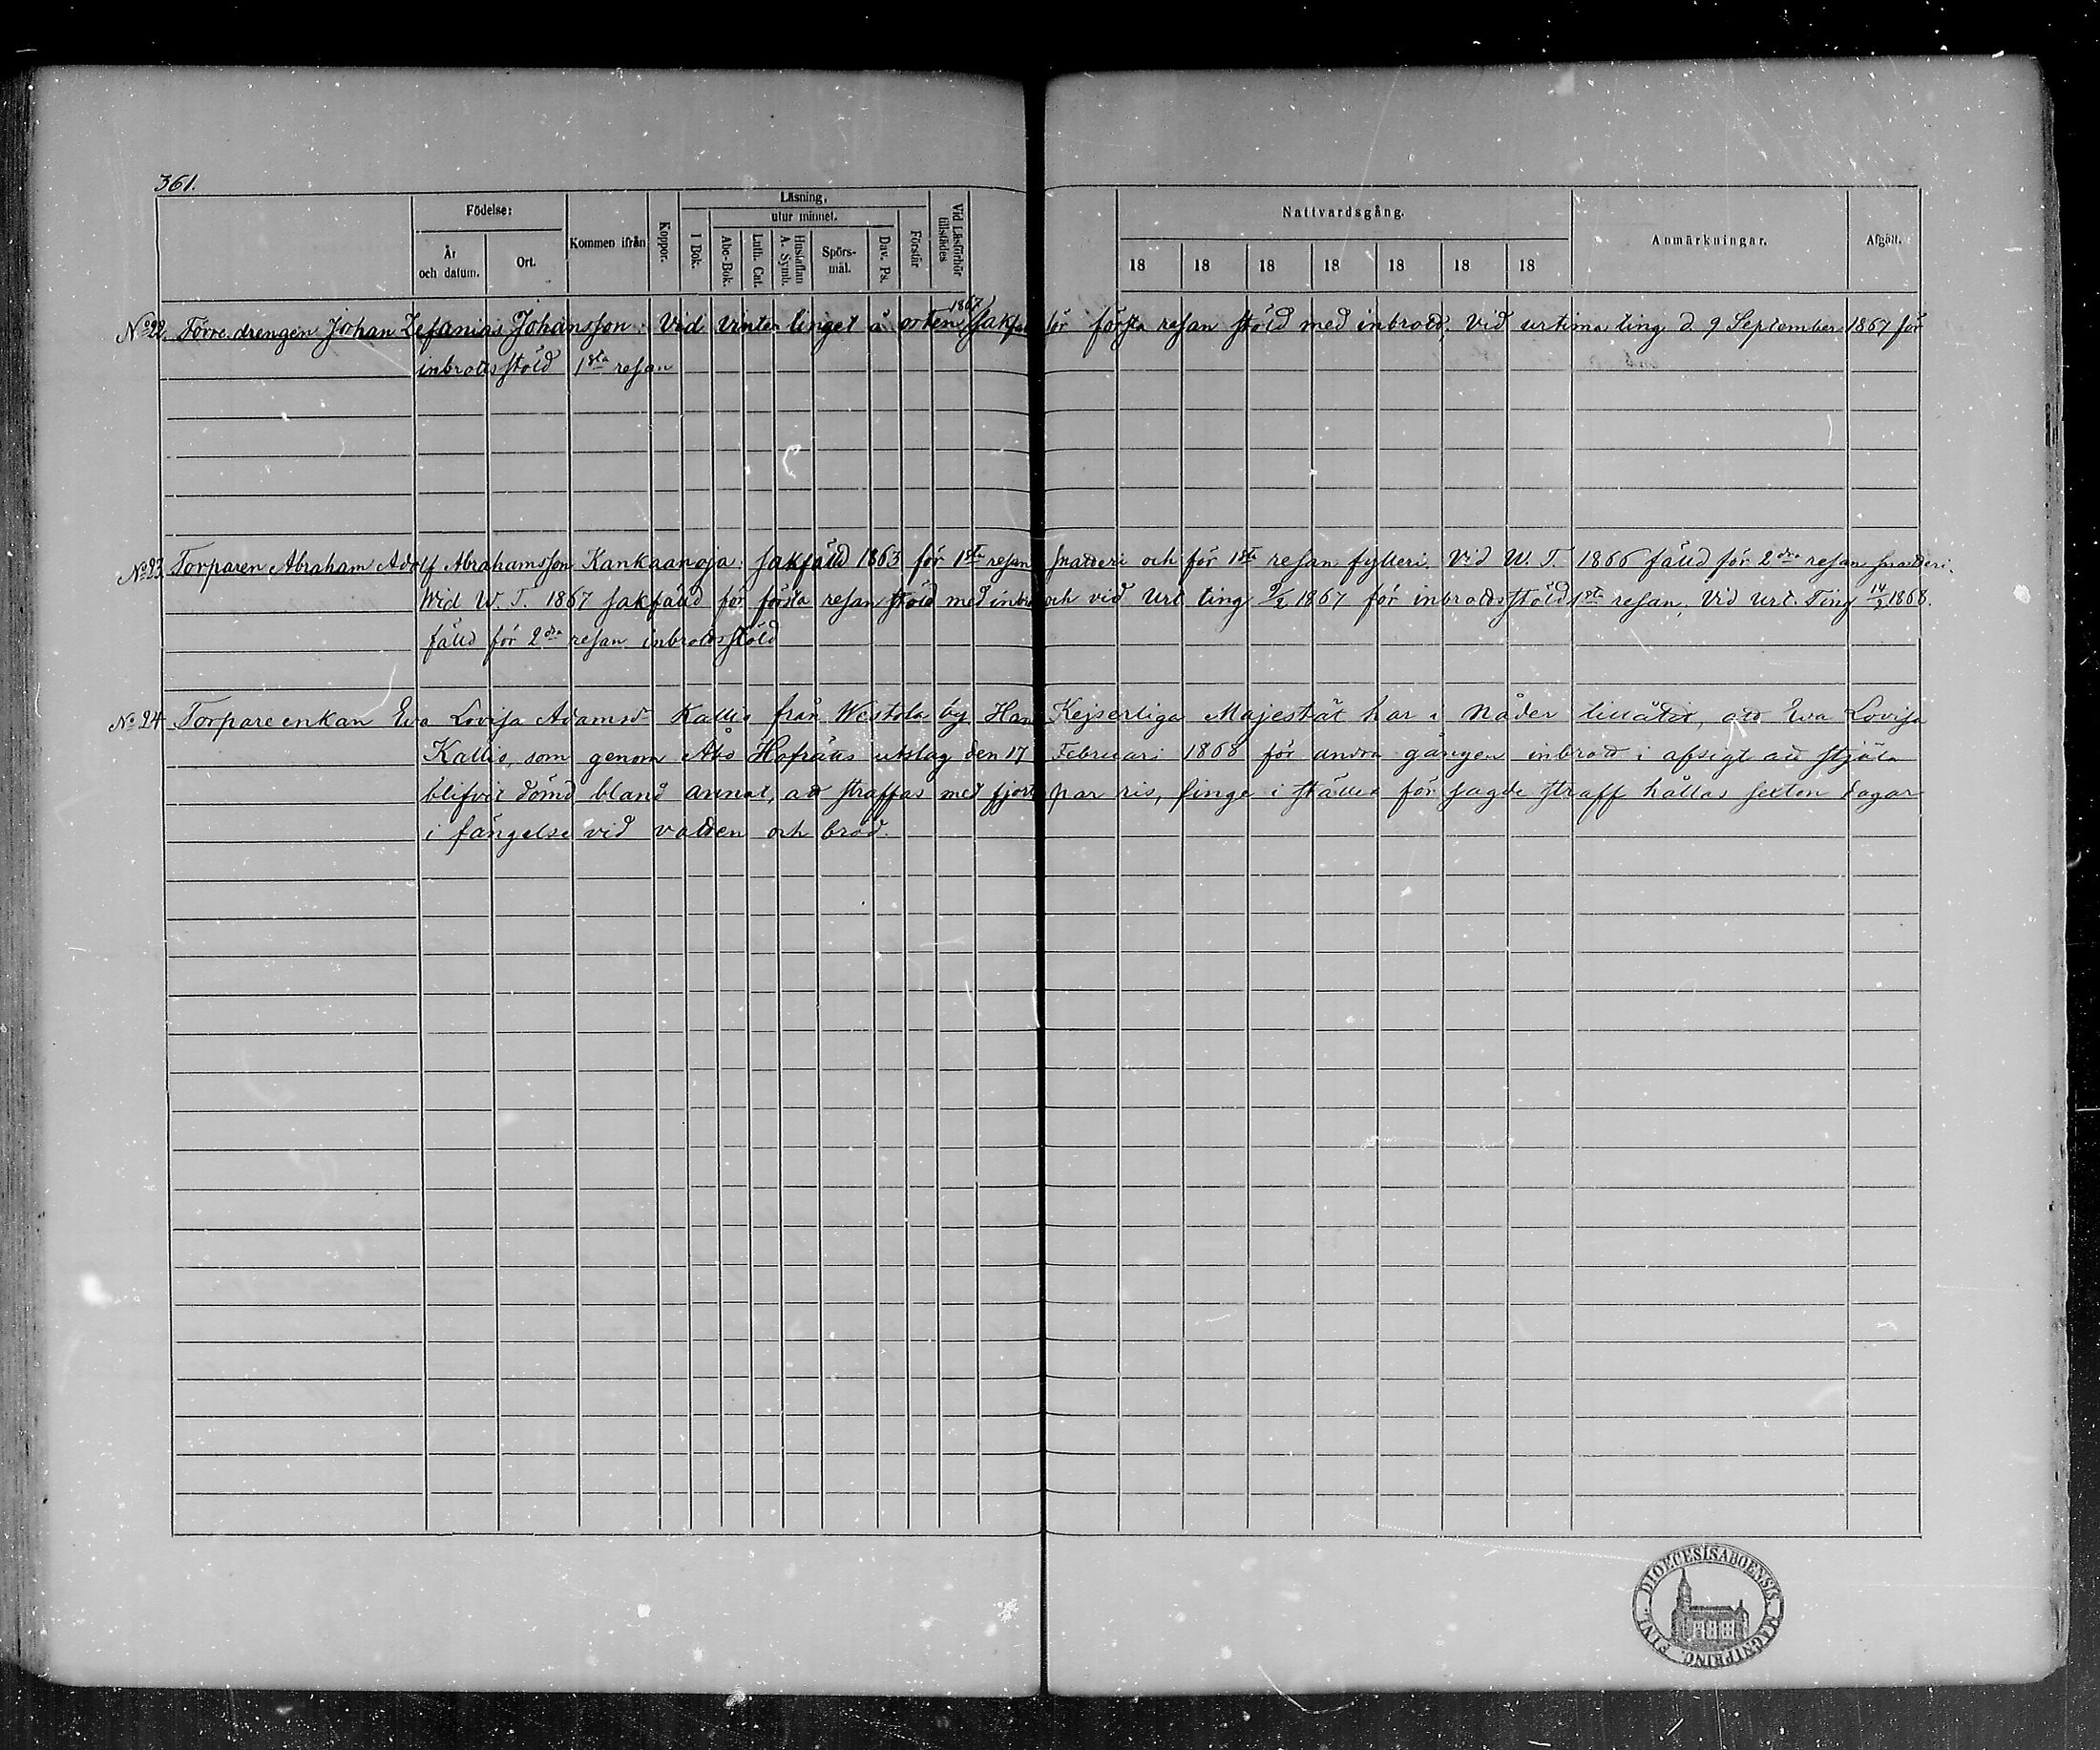 361.
Födelse:
År och datum.
Ort.
Kommen ifrån
Koppor.
Läsning,
utur minnet.
I Bok.
Abc-Bok.
Luth. Cat.
Hustaflan A. Symb.
Spörs-mål.
Dav. Ps.
Förstår
Vid Läsförhör tillstädes
Nattvardsgång.
18 18 18 18 18 18 18
Anmärkningar.
Afgått.
1867
No 22. Förre drengen Johan Zefanias Johansson: Vid Vinter tinget å orten sakfäl för första resan stöld med inbrott; Vid urtima ting d. 9 September 1867 för
inbrottsstöld 1sta resan
No 23. Torparen Abraham Adolf Abrahamsson Kankaanoja: sakfäld 1863 för 1sta resan snatteri och för 1sta resan fylleri. Vid W. T. 1866 fälld för 2dra resan snatteri.
Wid W. T. 1867 sakfälld för första resan stöld med inbro och vid Urt ting 9/2 1867 för inbrottsstöld 1sta resan. Vid Urt. Ting 14/2 1868.
fälld för 2dra resan inbrottsstöld
No 24 Torpareenkan Eva Lovisa Adamsdr Kallio från Westola by Hans Kejserliga Majestät har i Nåder tillåtit, att Eva Lovisa
Kallio, som genom Åbo Hofrätts utslag den 17 Februari 1868 för andra gången inbrott i afsigt att stjäla
blifvit dömd bland annat, att straffas med fjort par ris, finge i stället för sagde straff hållas sexton dagar
i fängelse vid vatten och bröd.
FINL. DIOECESIS ABOENSIS MAGNI PRINC.